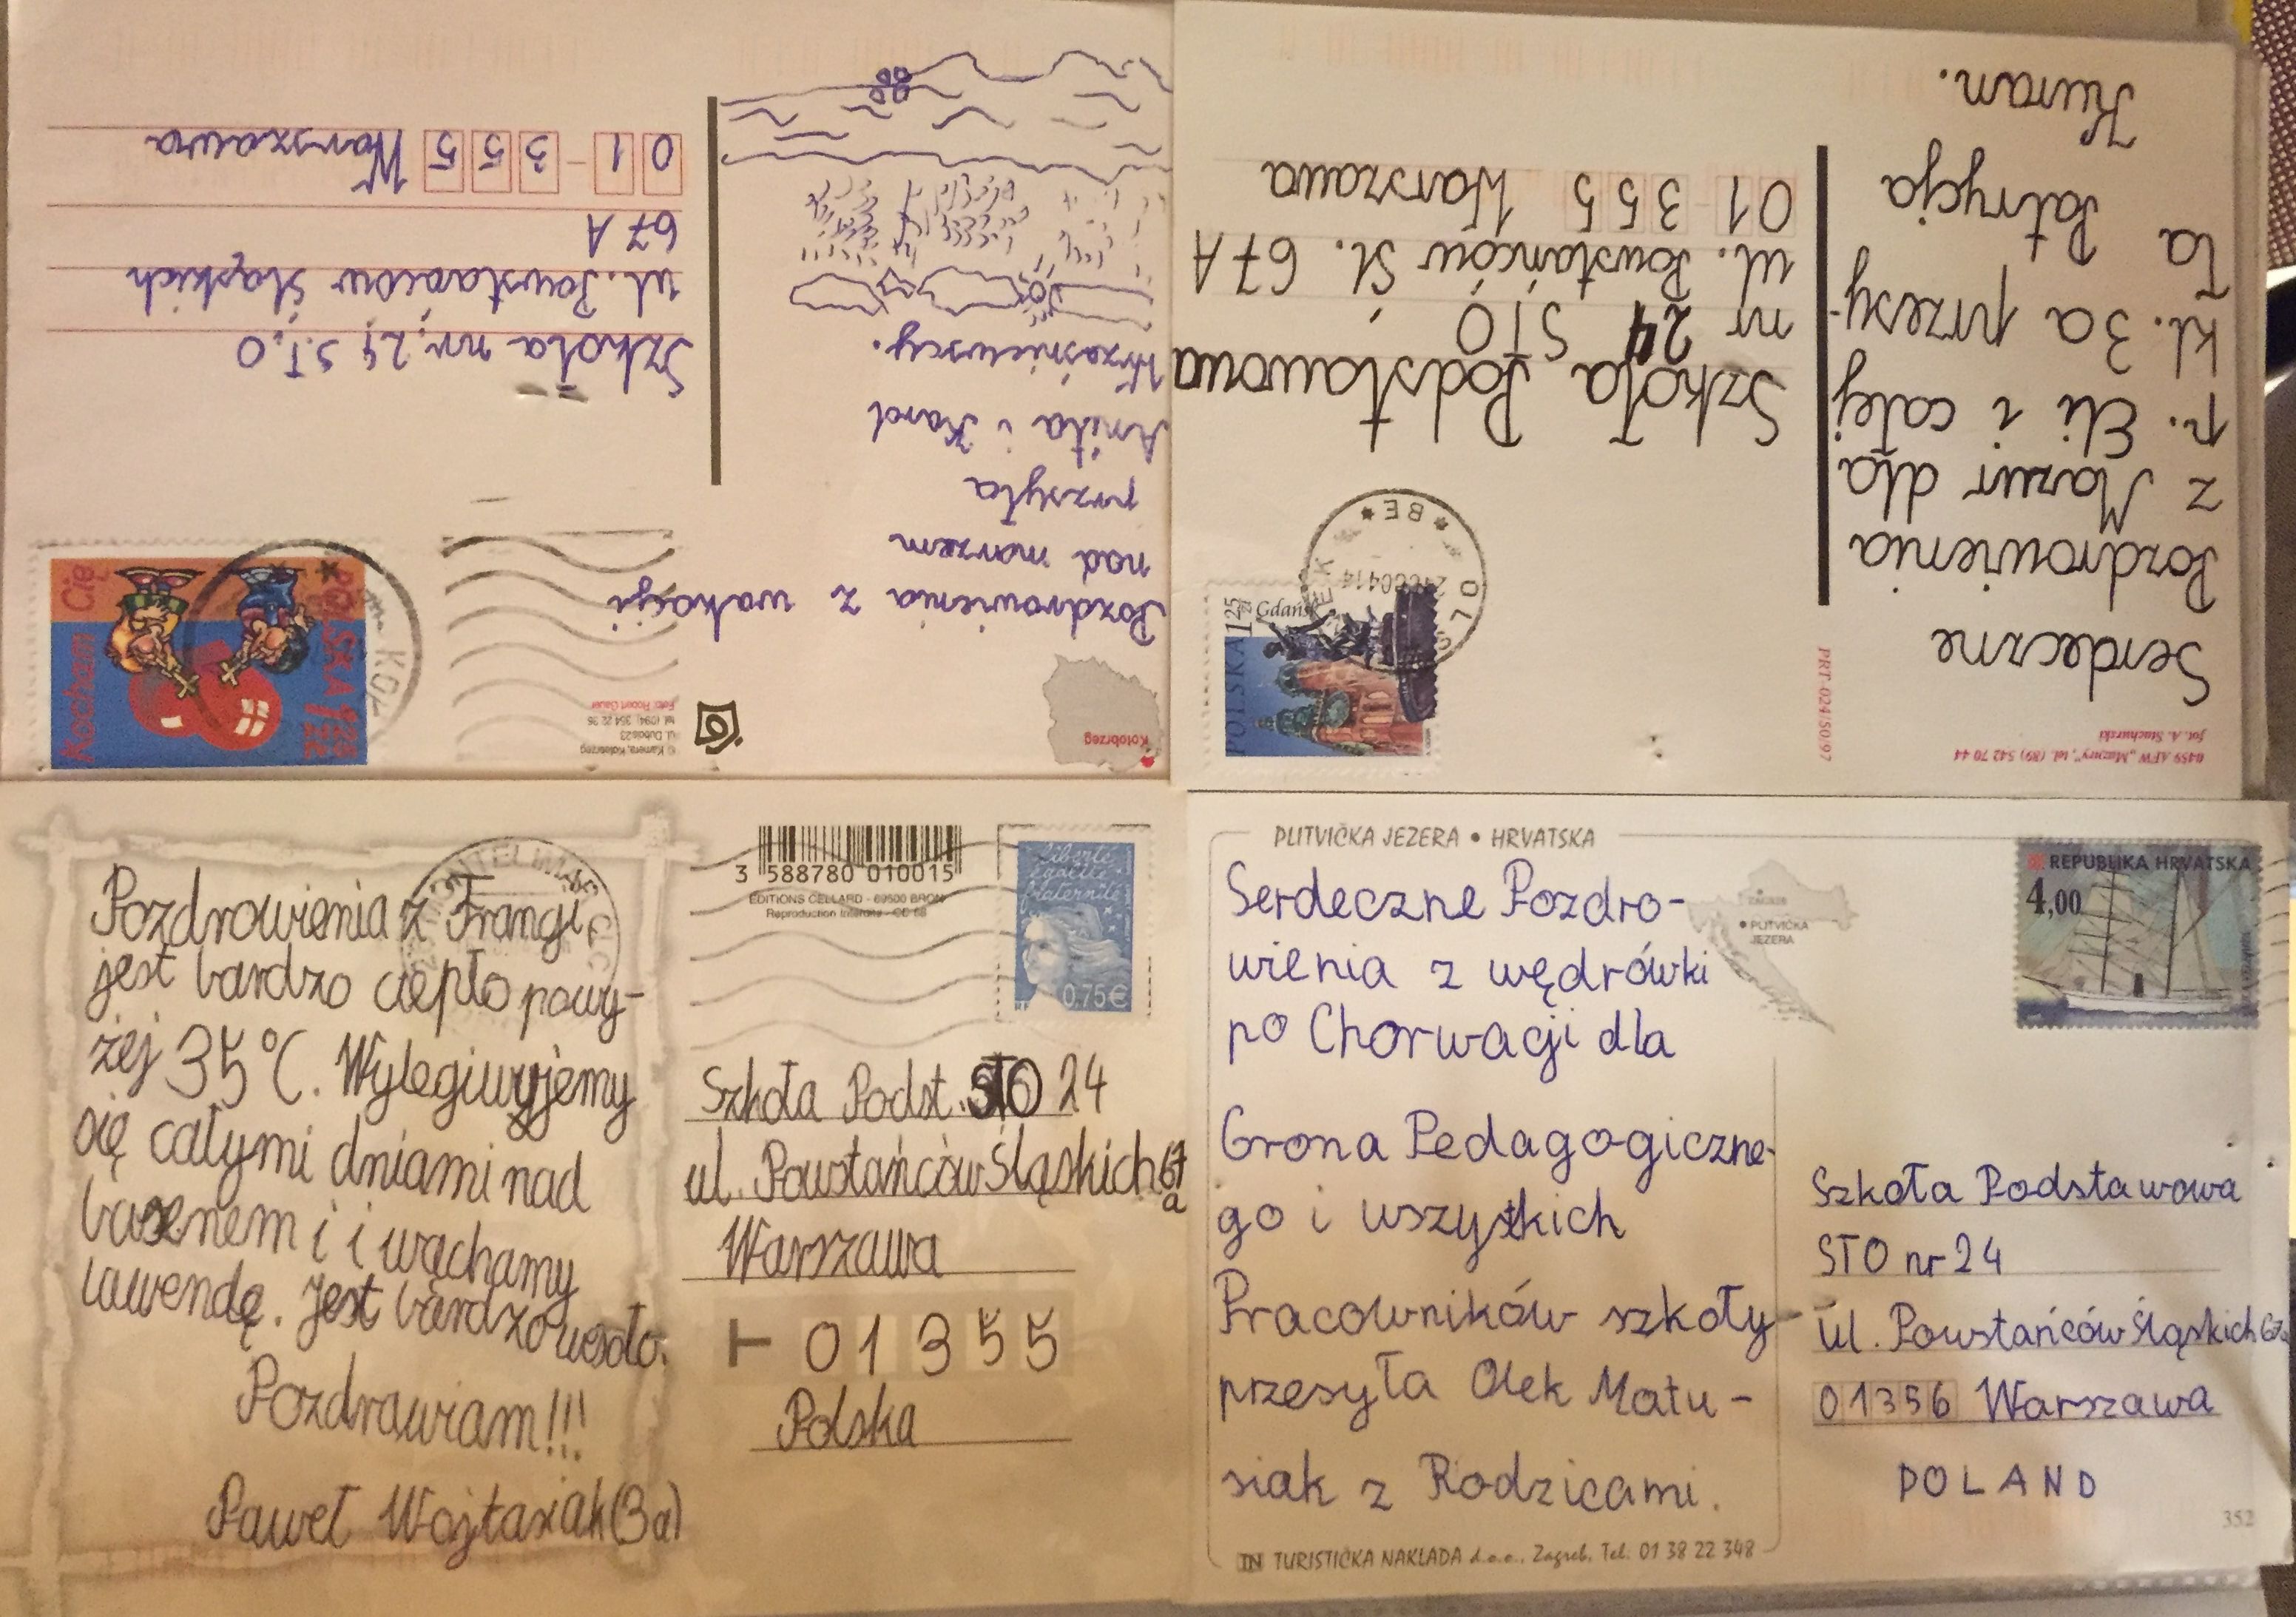 Pozdrowienia z wakacji
nad morzem
przsyła
Anita i Karol
Wrześniewscy.
Szkoła nr. 24 S.T.O
ul. Powstańców Śląskich
67 A
01-355 Warszawa
Kołobrzeg
© Kamera, Kołobrzeg
ul. Dubois 23
tel. (094) 354 22 36
Foto: Robert Gauer
Kocham Cię
POLSKA 1,25 zł
Serdeczne
Pozdrowienia
z Mazur dla
p. Eli i całej
kl. 3a przesy-
ła Patrycja
Kuran.
Szkoła Podstawowa
nr 24 STO
ul. Powstańców Śl. 67A
01 355 Warszawa
0459 AFW „Mazury", tel. (89) 542 70 44
fot. A. Stachurski
PRT-024/50/97
POLSKA 1,25 zł
Gdańsk
* BE *
Pozdrowienia z Frangi,
jest bardzo ciepło powy-
żej 35°C. Wylegiwujemy
się całymi dniami nad
basenem i i wąchamy
lawendę. Jest bardzo wesoło.
Pozdrawiam!!!
Paweł Wojtasiak (3a)
3 588780 010015
EDITIONS CELLARD - 69500 BRON
Reproduction Interdite - CE 68
Liberté
Égalité
Fraternité
RF 0,75€
Szkoła Podst. STO 24
ul. Powstańców Śląskich 67
a
Warszawa
01355
Polska
PLITVIČKA JEZERA • HRVATSKA
Serdeczne Pozdro-
wienia z wędrówki
po Chorwacji dla
Grona Pedagogiczne-
go i wszystkich
Pracowników szkoły
przesyła Olek Matu-
siak z Rodzicami.
ZAGREB
PLITVIČKA
JEZERA
REPUBLIKA HRVATSKA
4,00
Szkoła Podstawowa
STO nr 24
ul. Powstańców Śląskich 67a
01356 Warszawa
POLAND
352
TN TURISTIČKA NAKLADA d.o.o., Zagreb, Tel: 01 38 22 348